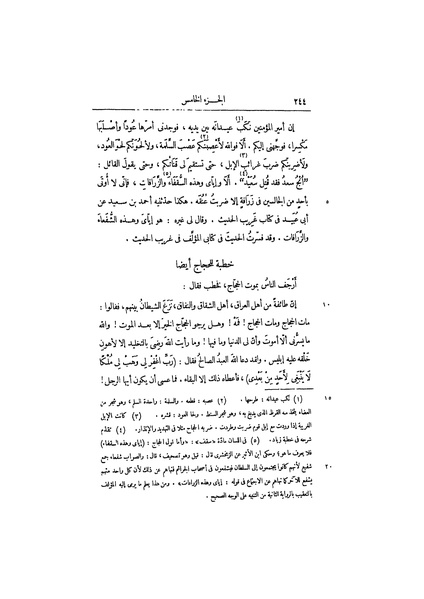 ٢٤٤ الجزء الخامس
إن أمير المؤمنين نكب (١) عيدانه بين يديه، فوجدني أمرّها عُودًا وأصلبها
مكسرا، فوجّهني إليكم. ألا فوالله لأعصبنّكم (٢) عَصْبَ السَّلَمة، ولألحُوَنّكم لحو العود، (٣)
ولأضربنّكم ضرب غرائب الإبل، حتى تستقيم لي قناتُكم، وحتى يقول القائل:
"اُنجُ سعدُ فقد قُتِل سُعَيْد" (٤). ألا وإياي وهذه السُّقفاء (٥) والزَّرافات، فإنّي لا أُوتَى
٥ بأحدٍ من الجالسين في زَرَافة إلا ضربتُ عُنُقه. هكذا حدّثنيه أحمد بن سعيد عن
أبي عُبيد في كتاب غريب الحديث. وقال لي غيره: هو إيّاي وهذه الشُّفعاء
والزَّرافات. وقد فسّرتُ الحديث في كتابي المؤلَّف في غريب الحديث.
خطبة للحجاج أيضا
أَرْجَفَ الناسُ بموت الحجاج، فخطب فقال:
١٠ إنّ طائفةً من أهل العراق، أهل الشقاق والنفاق، نَزَغ الشيطانُ بينهم، فقالوا:
مات الحجاج ومات الحجاج! فَمَهْ! وهل يرجو الحجاج الخير إلا بعد الموت! والله
ما يسُرُّني ألا أموتَ وأنّ لي الدنيا وما فيها! وما رأيت اللهَ رضِيَ بالتخليد إلا لأهون
خَلْقه عليه إبليس. ولقد دعا اللهَ العبدُ الصالحُ فقال: (رَبِّ اغْفِرْ لِي وَهَبْ لِي مُلْكًا
لَا يَنْبَغِي لِأَحَدٍ مِنْ بَعْدِي)، فأعطاه ذلك إلا البقاء. فما عسى أن يكون أيها الرجل!
١٥ (١) نكب عيدانه: طرحها. (٢) عصبه: قطعه. والسلمة: واحدة السلم، وهو شجر من
العضاه يتخذ منه القرظ الذي يدبغ به، وهو شجر السنط. ولحا العود: قشره. (٣) كانت الإبل
الغريبة إذا وردت مع إبل قوم ضربت وطردت. ضربه الحجاج مثلا في التهديد والإنذار. (٤) تقدّم
شرحه في خطبة زياد. (٥) في اللسان مادة «سقف»: «وأما قول الحجاج: (إياي وهذه السقفاء)
فلا يعرف ما هو؛ وحكى ابن الأثير عن الزمخشري قال: قيل وهو تصحيف، قال: والصواب شفعاء جمع
٢٠ شفيع لأنهم كانوا يجتمعون إلى السلطان فيشفعون في أصحاب الجرائم فنهاهم عن ذلك لأن كل واحد منهم
يشفع للآخر كما نهاهم عن الاجتماع في قوله: إياي وهذه الزرافات». ومن هذا يعلم ما يرمي إليه المؤلف
بالتعقيب بالرواية الثانية من التنبيه على الوجه الصحيح.